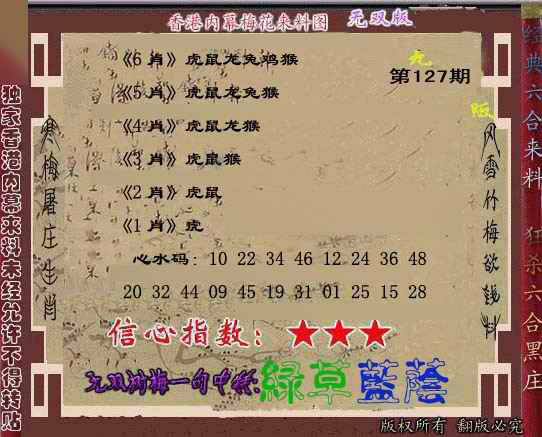 香港内幕梅花来料图 无双版
《6 肖》虎鼠龙兔鸡猴
《5 肖》虎鼠龙兔猴
《4 肖》虎鼠龙猴
《3 肖》虎鼠猴
《2 肖》虎鼠
《1 肖》虎
九
第127期
版
心水码: 10 22 34 46 12 24 36 48
20 32 44 09 45 19 31 01 25 15 28
信心指数: ★★★
无双刘梅一句中特:绿草蓝荫
寒梅屠庄生肖
风雪竹梅欲钱料
独家香港内幕来料未经允许不得转贴
经典六合来料 狂杀六合黑庄
版权所有 翻版必究